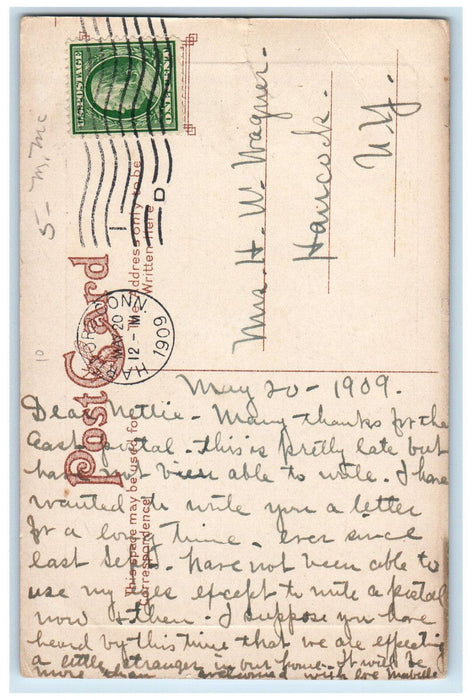 U.S. POSTAGE
ONE CENT
5- M, Mc
10
HARTFORD, CONN.
MAY 20
12 - M
1909
D
Post Card
The Address only to be
Written here.
This space may be used for
correspondence.
Mrs. H. W. Wagner.
Hancock.
N.Y.
May 20 - 1909.
Dear Nettie - Many thanks for the
last postal. this is pretty late but
have not been able to write. I have
wanted to write you a letter
for a long time. ever since
last Sept. have not been able to
use my eyes except to write a postal
now & then. I suppose you have
heard by this time that we are expecting
a little stranger in our home. It will be
more than welcomed with love Mabelle